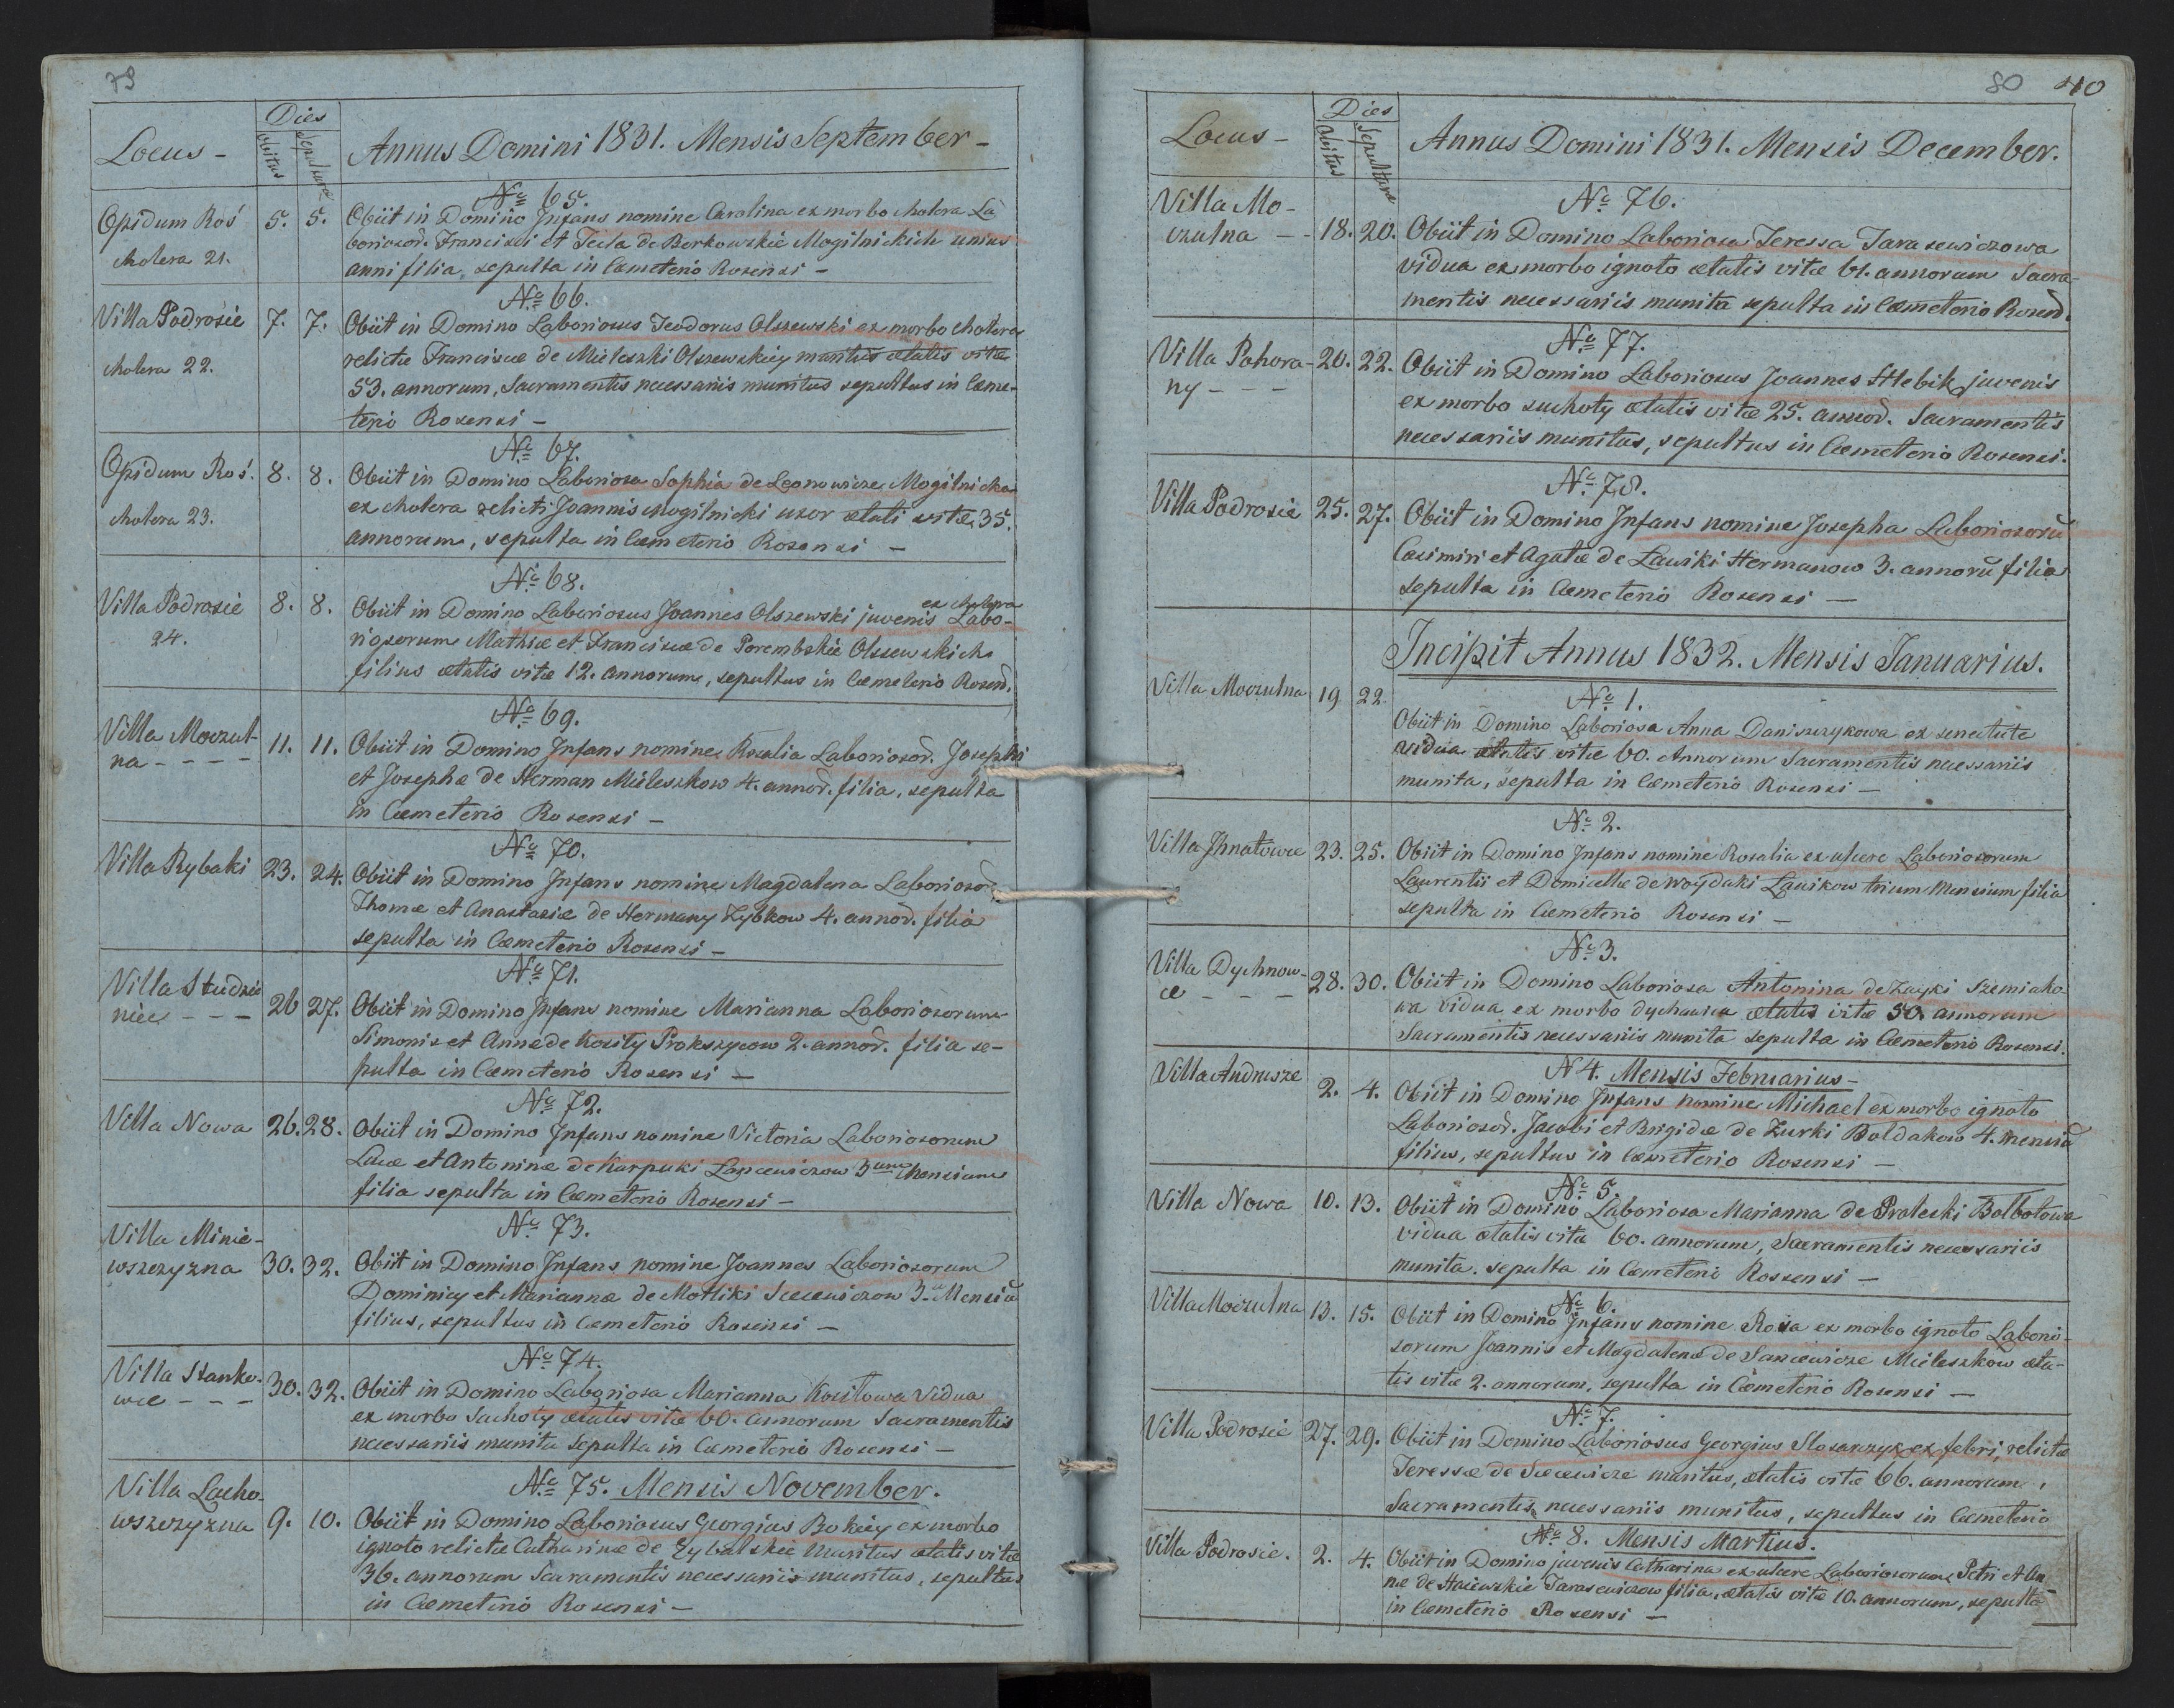 79
Locus -
Dies
obitus
Sepulturæ
Annus Domini 1831. Mensis September -
Opidum Roś
cholera 21.
5. 5.
No 65.
Obiit in Domino Infans nomine Carolina ex morbo cholera La-
boriosor. Francisci et Tecla de Borkowskie Mogilnickich unius
anni filia, sepulta in Cæmeterio Rosensi -
Villa Podrosie
cholera 22.
7. 7.
No 66.
Obiit in Domino Laboriosus Teodorus Olszewski ex morbo cholera
relictæ Franciscæ de Mieleszki Olszewskiey maritus ætatis vitæ
53. annorum, Sacramentis necessariis munitus sepultus in Cæme-
terio Rosensi -
Opidum Roś.
cholera 23.
8. 8.
No 67.
Obiit in Domino Laboriosa Sophia de Leonowicze Mogilnicka
ex cholera relicti Joannis Mogilnicki uxor ætati vitæ 35.
annorum, sepulta in Cæmeterio Rosensi -
Villa Podrosie
24.
8. 8.
No 68.
ex cholera
Obiit in Domino Laboriosus Joannes Olszewski juvenis Labo-
riosorum Mathiæ et Franciscæ de Porembskie Olszewskich
filius ætatis vitæ 12. annorum, sepultus in Cæmeterio Rosens.
Villa Moczul-
na - - - -
11. 11.
No 69.
Obiit in Domino Infans nomine Rosalia Laboriosor. Josephi
et Josephæ de Herman Mieleszkow 4. annor. filia, sepulta
in Cæmeterio Rosensi -
Villa Rybaki
23. 24.
No 70.
Obiit in Domino Infans nomine Magdalena Laboriosor.
Thomæ et Anastasiæ de Hermany Zybkow 4. annor. filia
sepulta in Cæmeterio Rosensi -
Villa Studzie
niec - - -
26 27.
No 71.
Obiit in Domino Infans nomine Marianna Laboriosorum
Simonis et Annæ de Kosity Prokszycow 2. annor. filia se-
pulta in Cæmeterio Rosensi -
Villa Nowa
26. 28.
No 72.
Obiit in Domino Infans nomine Victoria Laboriosorum
Lucæ et Antoninæ de Karpuki Lancewiczow 3um mensium
filia sepulta in Cæmeterio Rosensi -
Villa Minie-
wszczyzna
30. 32.
No 73.
Obiit in Domino Infans nomine Joannes Laboriosorum
Dominicy et Mariannæ de Motliki Sacewiczow 3. Mensiū
filius, sepultus in Cæmeterio Rosensi -
Villa Stanko-
wce - - -
30. 32.
No 74.
Obiit in Domino Laboriosa Marianna Kositowa Vidua
ex morbo Suchoty ætatis vitæ 60. annorum Sacramentis
necessariis munita sepulta in Cæmeterio Rosensi -
Villa Lacho-
wszczyzna
9. 10.
No 75. Mensis November.
Obiit in Domino Laboriosus Georgius Bokiey ex morbo
ignoto relictæ Catharinæ de Zybalskie Maritus ætatis vitæ
36. annorum Sacramentis necessariis munitus, sepultus
in Cæmeterio Rosensi -
80 40
Locus -
Dies
obitus
Sepulturæ
Annus Domini 1831. Mensis December.
Villa Mo-
czulna - -
18. 20.
No 76.
Obiit in Domino Laboriosa Teressa Tarasewiczowa
vidua ex morbo ignoto ætatis vitæ 61. annorum Sacra-
mentis necessariis munita sepulta in Cæmeterio Rosens.
Villa Pohora-
ny - - -
20. 22.
No 77.
Obiit in Domino Laboriosus Joannes Hlebik juvenis
ex morbo suchoty ætatis vitæ 25. annor. Sacramentis
necessariis munitus, sepultus in Cæmeterio Rosensi.
Villa Podrosie
25. 27.
No 78.
Obiit in Domino Infans nomine Josepha Laboriosorū
Casimiri et Agatæ de Lawiki Hermanow 3. annorū filia
sepulta in Cæmeterio Rosensi -
Incipit Annus 1832. Mensis Januarius.
Villa Moczulna
19 22
No 1.
Obiit in Domino Laboriosa Anna Daniszczykowa ex senectute
vidua ætatis vitæ 60. Annorum Sacramentis necessariis
munita, sepulta in Cæmeterio Rosensi -
Villa Ihnatowce
23. 25.
No 2.
Obiit in Domino Infans nomine Rosalia ex ulcere Laboriosorum
Laurentii et Domicellæ de Woydaki Lawikow trium Mensium filia
sepulta in Cæmeterio Rosensi -
Villa Dychnow-
ce - - -
28. 30.
No 3.
Obiit in Domino Laboriosa Antonina de Zayki Szemiako-
wa Vidua ex morbo dychawica ætatis vitæ 50. annorum
Sacramentis necessariis munita sepulta in Cæmeterio Rosensi.
Villa Andrusze
2. 4.
N 4. Mensis Februarius -
Obiit in Domino Infans nomine Michael ex morbo ignoto
Laboriosor. Jacobi et Brigidæ de Zurki Boldakow 4. mensiū
filius, sepultus in Cæmeterio Rosensi -
Villa Nowa
10. 13.
No 5.
Obiit in Domino Laboriosa Marianna de Proleski Bolbotowa
vidua ætatis vitæ 60. annorum, Sacramentis necessariis
munita. sepulta in Cæmeterio Rossensi -
Villa Moczulna
13. 15.
No 6.
Obiit in Domino Infans nomine Rosa ex morbo ignoto Laborio-
sorum Joannis et Magdalenæ de Sancewicze Mieleszkow æta-
tis vitæ 2. annorum, sepulta in Cæmeterio Rosensi -
Villa Podrosie
27. 29.
No 7.
Obiit in Domino Laboriosus Georgius Slosarczyk ex febri, relictæ
Teressæ de Sacewicze maritus, ætatis vitæ 66. annorum,
Sacramentis necessariis munitus, sepultus in Cæmeterio
Villa Podrosie.
2. 4.
No 8. Mensis Martius.
Obiit in Domino juvenis Catharina ex ulcere Laboriosorum Petri et An
næ de Haiewskie Tarasewiczow filia, ætatis vitæ 10. annorum, sepulta
in Cæmeterio Rosensi -